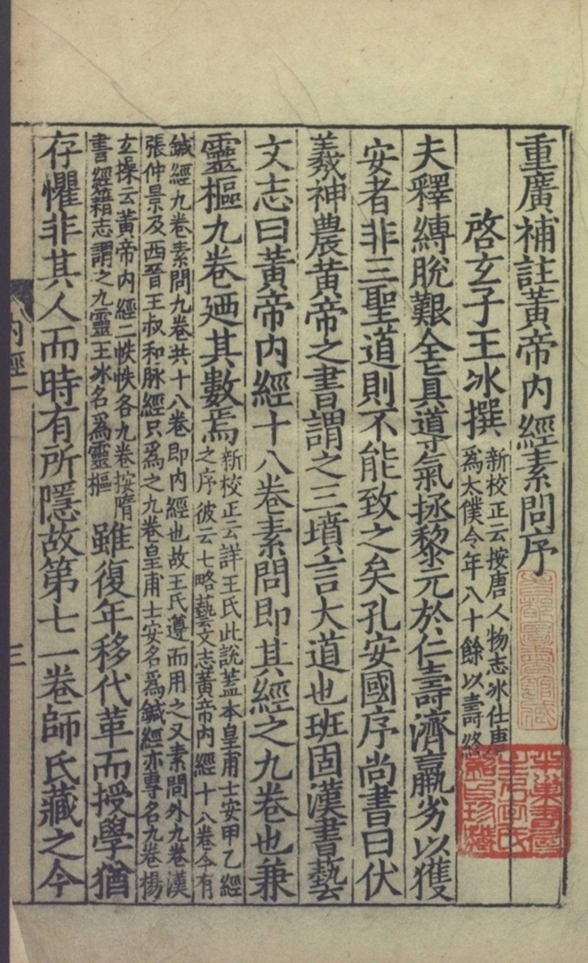 重廣補註黃帝內經素問序
啓玄子王冰撰
新校正云按唐人物志冰仕唐
爲太僕令年八十餘以壽終
夫釋縛脫艱全眞導氣拯黎元於仁壽濟羸劣以獲
安者非三聖道則不能致之矣孔安國序尚書曰伏
羲神農黃帝之書謂之三墳言大道也班固漢書藝
文志曰黃帝內經十八卷素問即其經之九卷也兼
靈樞九卷廼其數焉
新校正云詳王氏此說蓋本皇甫士安甲乙經
之序彼云七略藝文志黃帝內經十八卷今有
鍼經九卷素問九卷共十八卷即內經也故王氏遵而用之又素問外九卷漢
張仲景及西晉王叔和脉經只爲之九卷皇甫士安名爲鍼經亦專名九卷楊
玄操云黃帝內經二帙帙各九卷按隋
書經籍志謂之九靈王冰名爲靈樞
雖復年移代革而授學猶
存懼非其人而時有所隱故第七一卷師氏藏之今
內經一
三